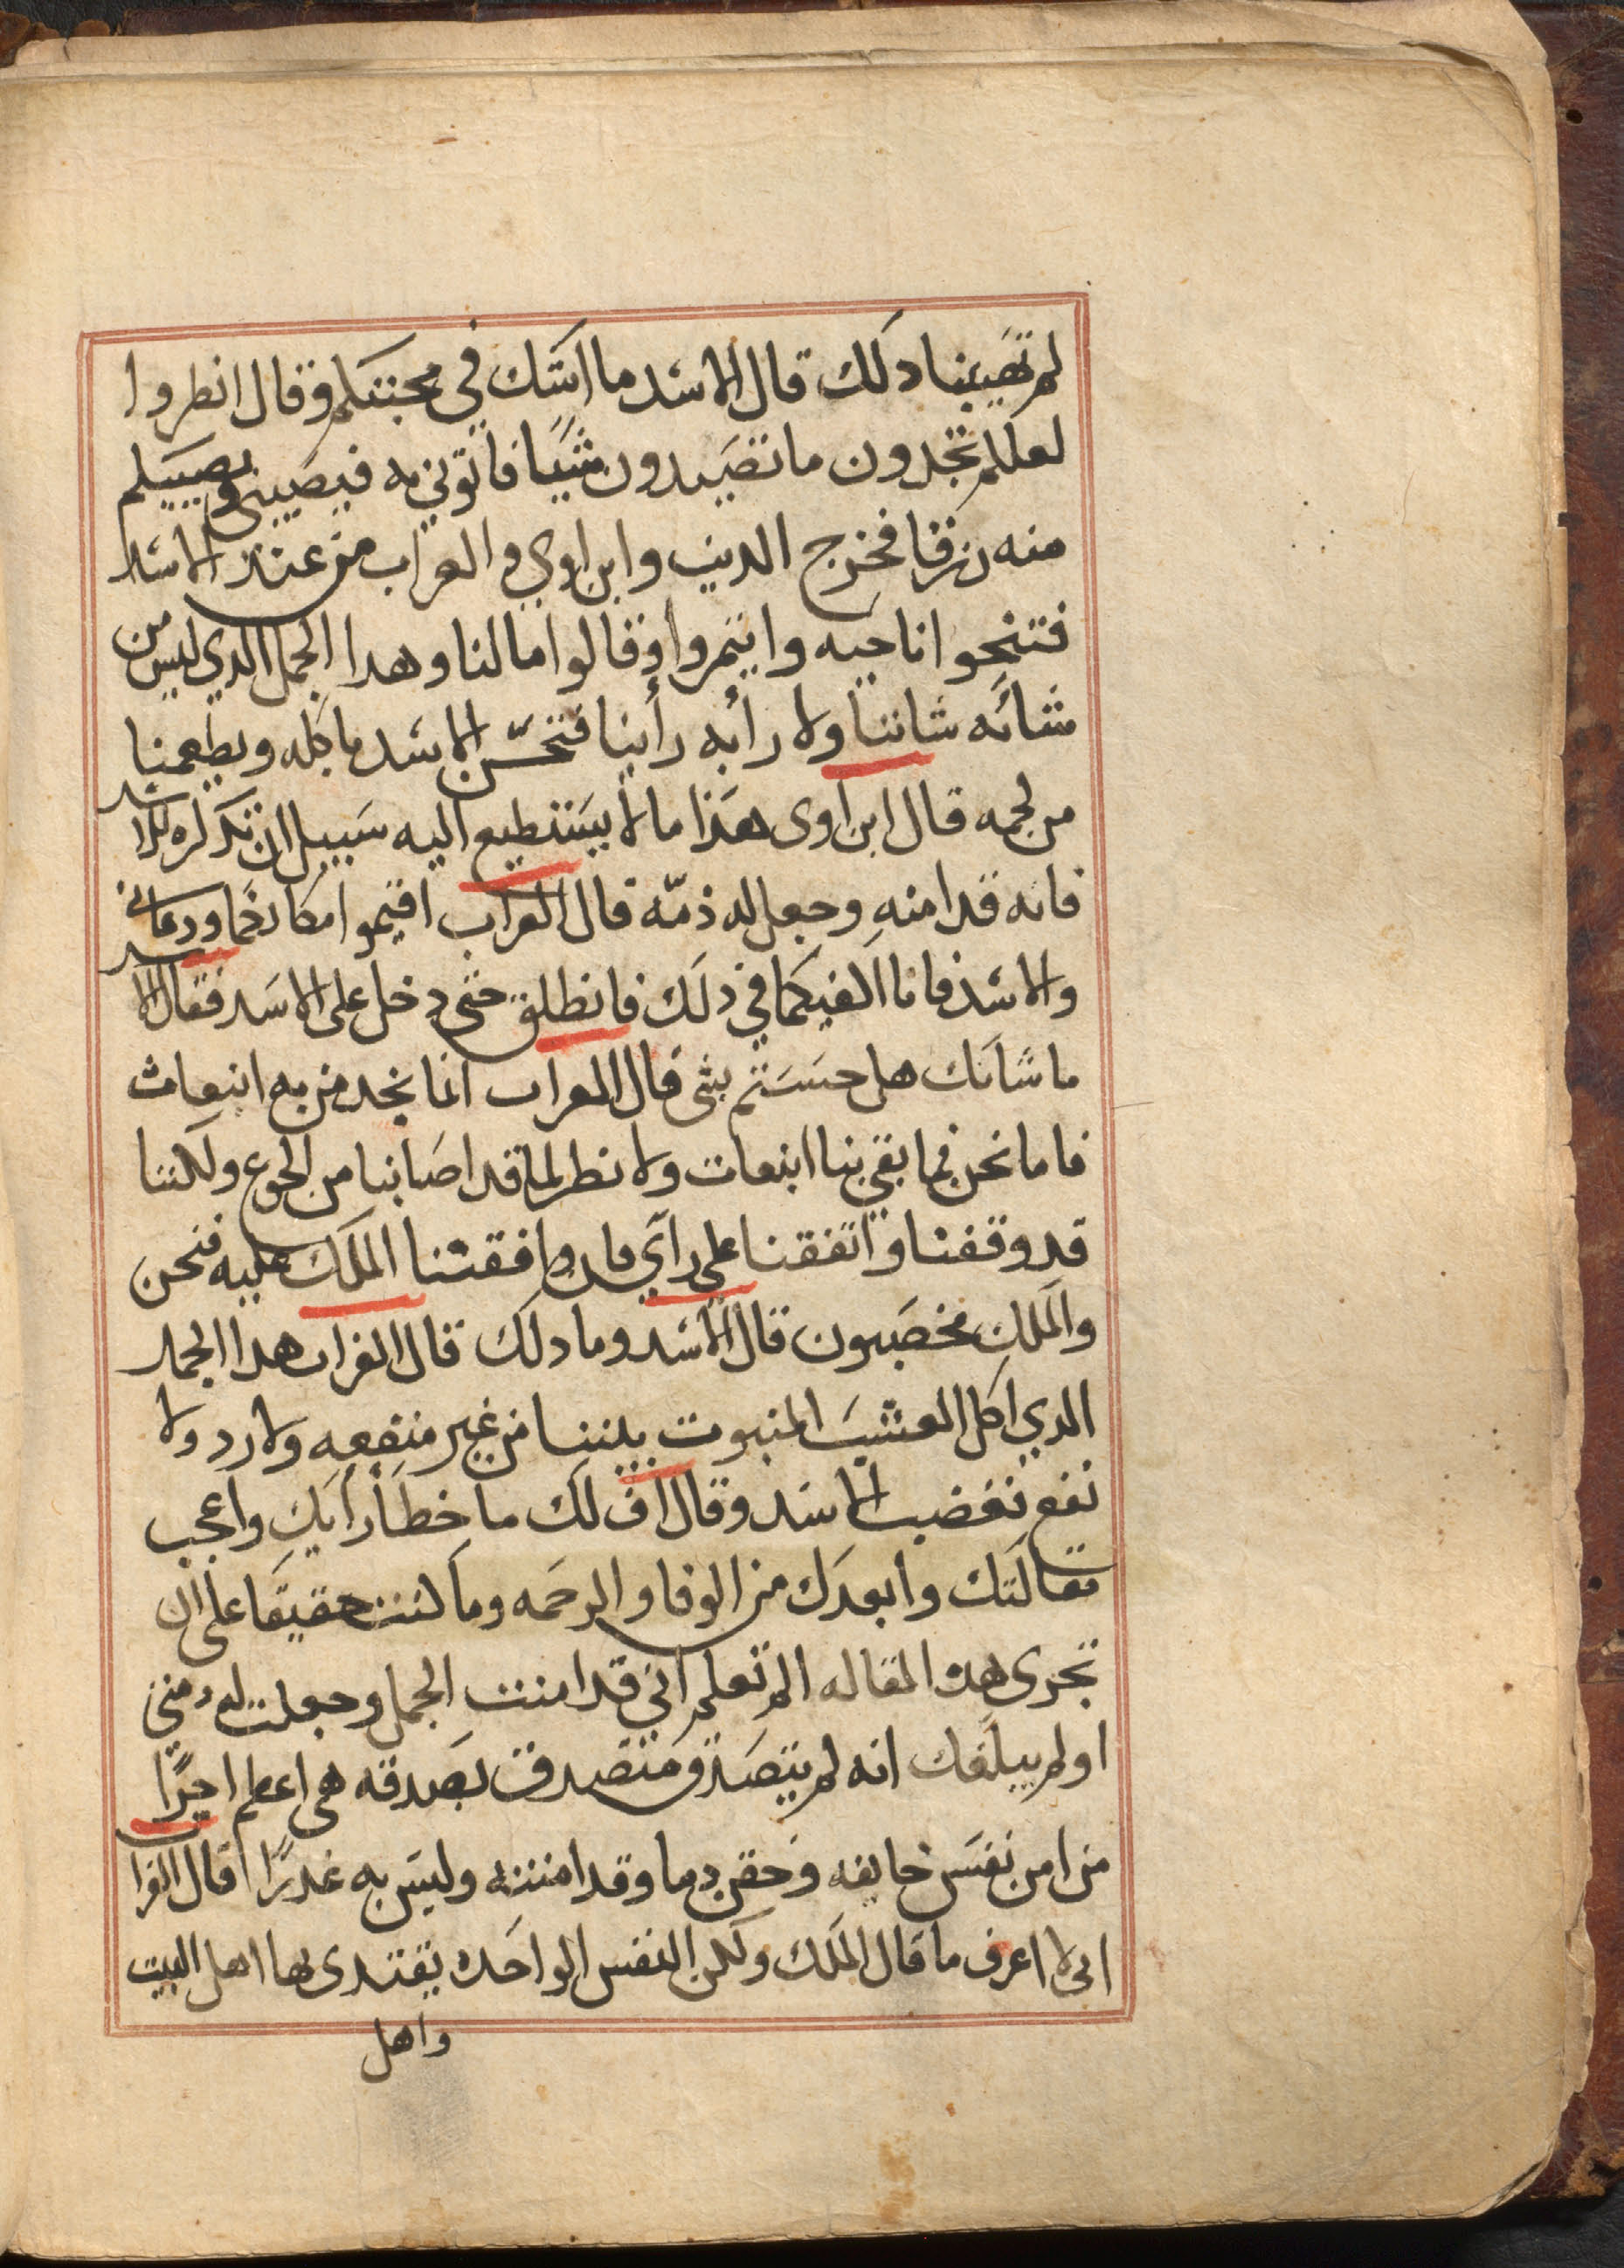 لم تهيبنا دلك قال الاسد ما اشك في محبتكم وقال انطروا
لعلكم تجدون ما تصيدون شيًا فاتوني به فيصيبني ويصيبكم
منه رزقا فخرج الديب وابن اوي والعراب من عند الاسد
فتنحوا ناحيه وايتمروا وقالوا ما لنا وهدا الجمل الدي ليس من
شانه شاننا ولا رأيه رأينا فتحسّن الاسد ياكله ويطعمنا
من لحمه قال ابن اوى هذا ما لا يستطيع اليه سبيل ان تدكره للاسد
فانه قد امنه وجعل له ذمّه قال العراب اقيموا مكانكما ودعاني
والاسد فانا اكفيكما في ذلك فانطلق حتى دخل على الاسد فقال الاسد
ما شانك هل حسستم بشى قال العراب انما يجد من به انبعاث
فاما نحن فما بقي بنا ابنعات ولا نطر لما قد اصابنا من الجوع ولكننا
قد وقفنا واتفقنا على رآي فان وافقتنا الملك عليه فنحن
والملك مخصبون قال الاسد وما دلك قال الغراب هدا الجمل
الدي اكل العشب المنبوت بيننا من غير منفعه ولا رد ولا
نفع فغضب الاسد وقال اف لك ما خطأ رأيك واعجب
مقالتك وابعدك من الوفا والرحمه وما كنت حقيقا على ان
تجرى هده المقاله الم تعلم اني قد امنت الجمل وجعلت له دمتي
او لم يبلغك انه لم يتصدق متصدق بصدقه هى اعطم اجرًا
من امن نفس خايفه وحقن دما وقد امنته وليس به غدرًا قال الغرا
انى لا اعرف ما قال الملك ولكن النفس الواحده يقتدى بها اهل البيت
واهل